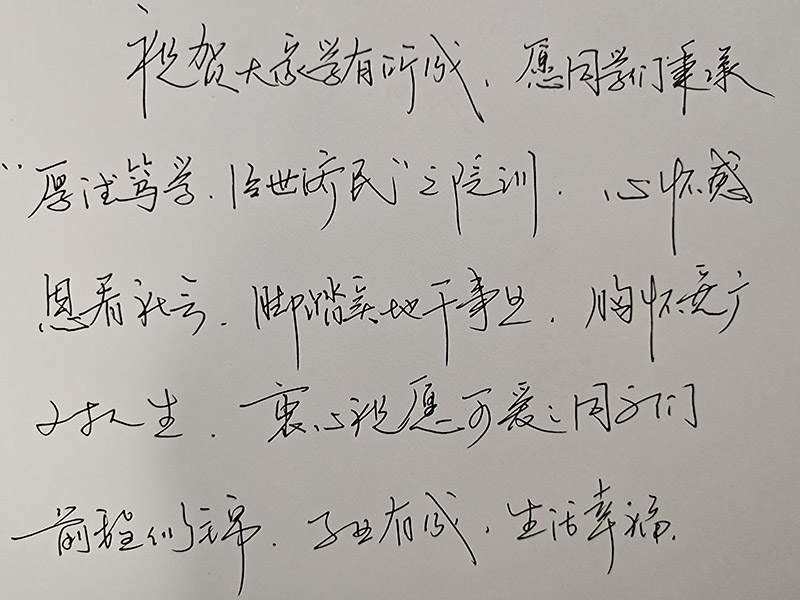 祝贺大家学有所成，愿同学们秉承
“厚德笃学、治世济民”之院训，心怀感
恩看社会，脚踏实地干事业，胸怀宽广
对人生，衷心祝愿可爱之同学们
前程似锦，学业有成，生活幸福。